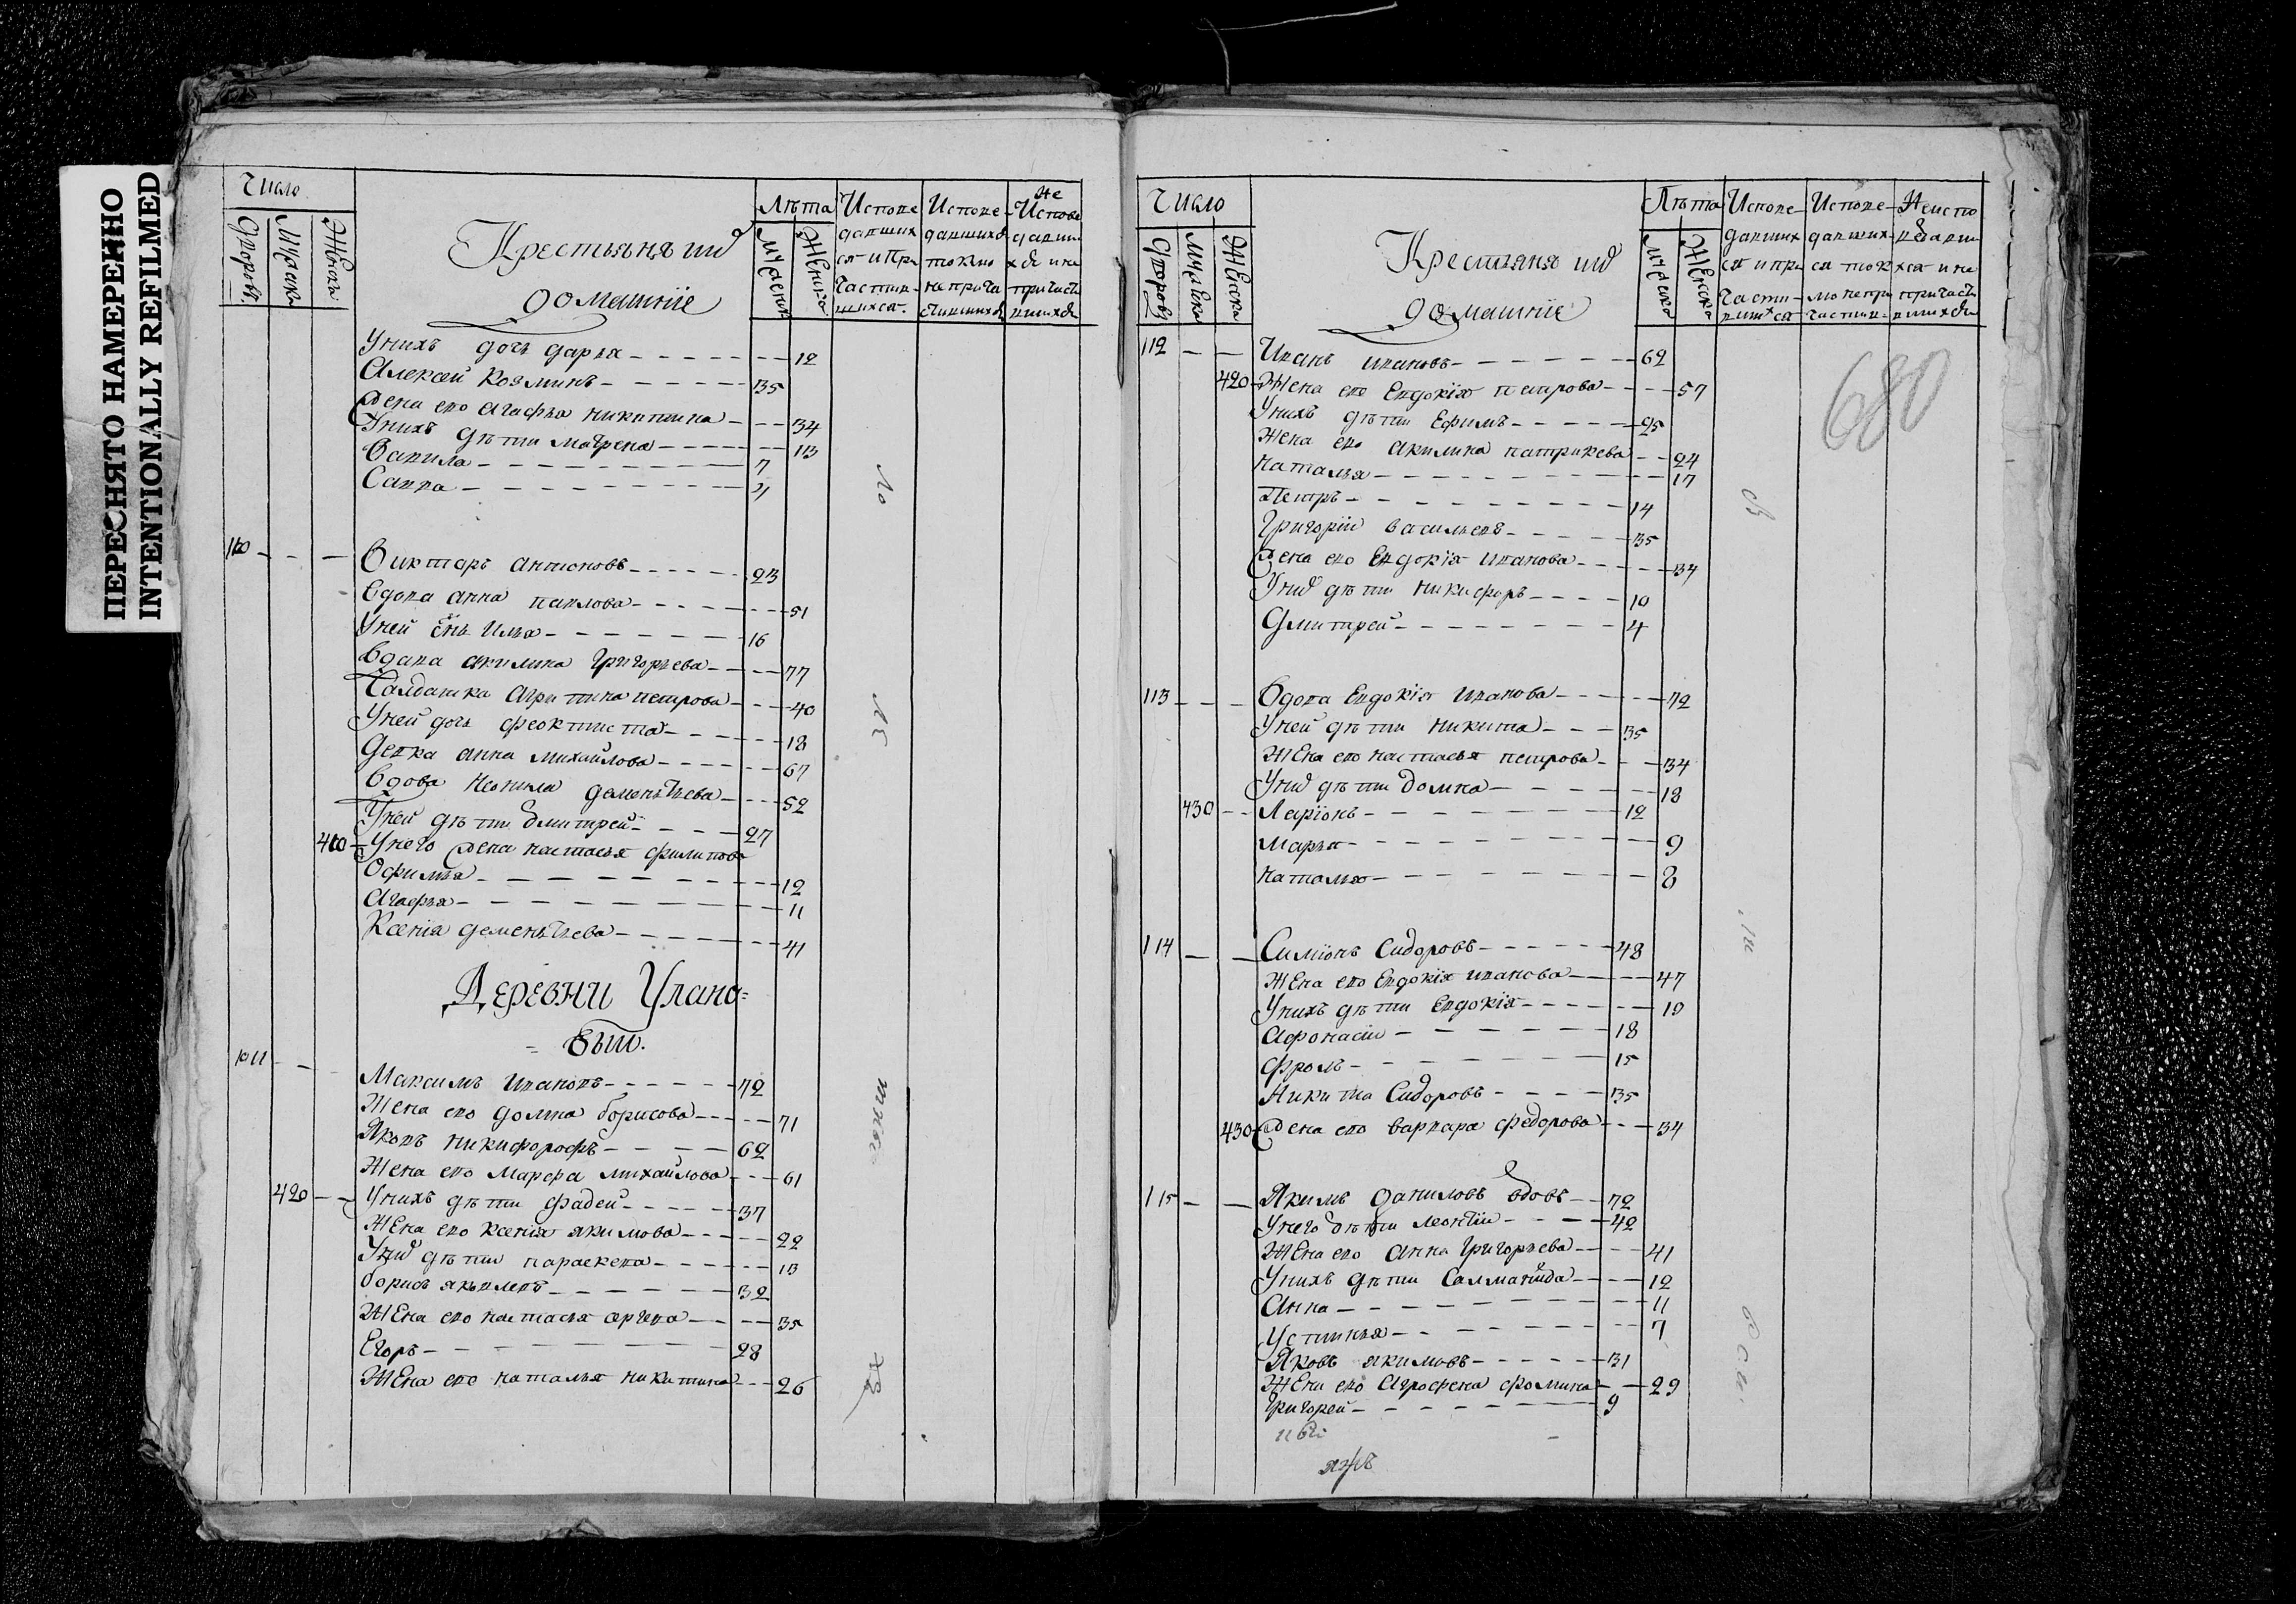 ПЕРЕСНЯТО НАМЕРЕННО
INTENTIONALLY REFILMED
Число
Дворовъ
Мужска
Женска
Крестьянѣ ихъ
домашніе
Лѣта
Мужска
Женска
Исповедавшихся и Причастившихся.
Исповедавшихся токмо не причастившихся
Не Исповедавшихся и не причастившихся
Унихъ дочь дарья 12
Алексей Козминъ 35
Жена ево агафья никитина 34
Унихъ дѣти матрена 13
Вавила 7
Савва 4
110 Виктаръ антоновъ 23
Вдова анна павлова 51
Уней снъ Илья 16
Вдова акилина Григорьева 77
Салдатка Агрипина петрова 40
Уней дочь феоктиста 18
Девка анна михайлова 67
Вдова Неонила дементьева 52
Уней дѣти дмитрей 27
410 Унего жена настасья филипова
Офимья 12
Агафья 11
Ксенія дементьева 41
Деревни Улано=
=выи.
Максимъ Ивановъ 72
Жена ево домна борисова 71
Яковъ никифорофъ 62
Жена ево Марфа михайлова 61
420 Унихъ дѣти фадей 37
Жена ево ксенія якимова 22
Унихъ дѣти параскева 13
борисъ яковлевъ 32
Жена ево настасья
35
Егоръ 28
Жена ево наталья никитина 26
Число
Дворовъ
Мужска
Женска
Крестьяня ихъ
домашніе
Лѣта
Мужска
Женска
Исповедавшихся и причастившихся
Исповедавшихся токмо непричастив
Неисповедавшихся и непричастившихся
680
112 Иванъ ивановъ 62
420 Жена ево Евдокія петрова 57
Унихъ дѣти Ефимъ 25
Жена ево акилина патрикева 24
наталья 17
Петръ 14
Григоріи васильевъ 35
Жена ево Евдокія иванова 34
Унихъ дѣти никифоръ 10
Дмитрей 4
113 Вдова Евдокія иванова 72
Уней дѣти никита 35
Жена ево настасья петрова 34
Унихъ дѣти домна 18
430 Ларіонъ 12
Марья 9
наталья 8
114 Симіонъ Сидоровъ 48
Жена ево Евдокія иванова 47
Унихъ дѣти Евдокія 19
Афонасіи 18
фролъ 15
Никита Сидоровъ 35
430 Жена ево варвара федорова 34
115 Якимъ даниловъ вдовъ 72
Унего дѣти леонтіи 42
Жена ево анна Григорьева 41
Унихъ дѣти Салманида 12
Анна 11
Устинья 7
Яковъ якимовъ 31
Жена ево Аграфена фомина 29
Григорей 9